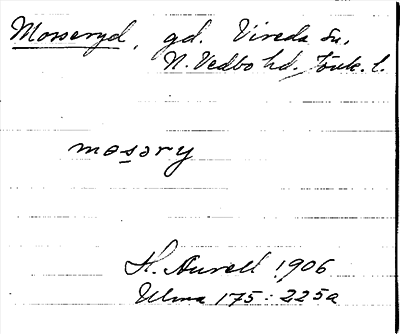 Mosseryd, gd. Vireda sn,
N. Vedbo hd, Jönk. l.
mosəry
H. Aurell 1906
Ulma 175:225a